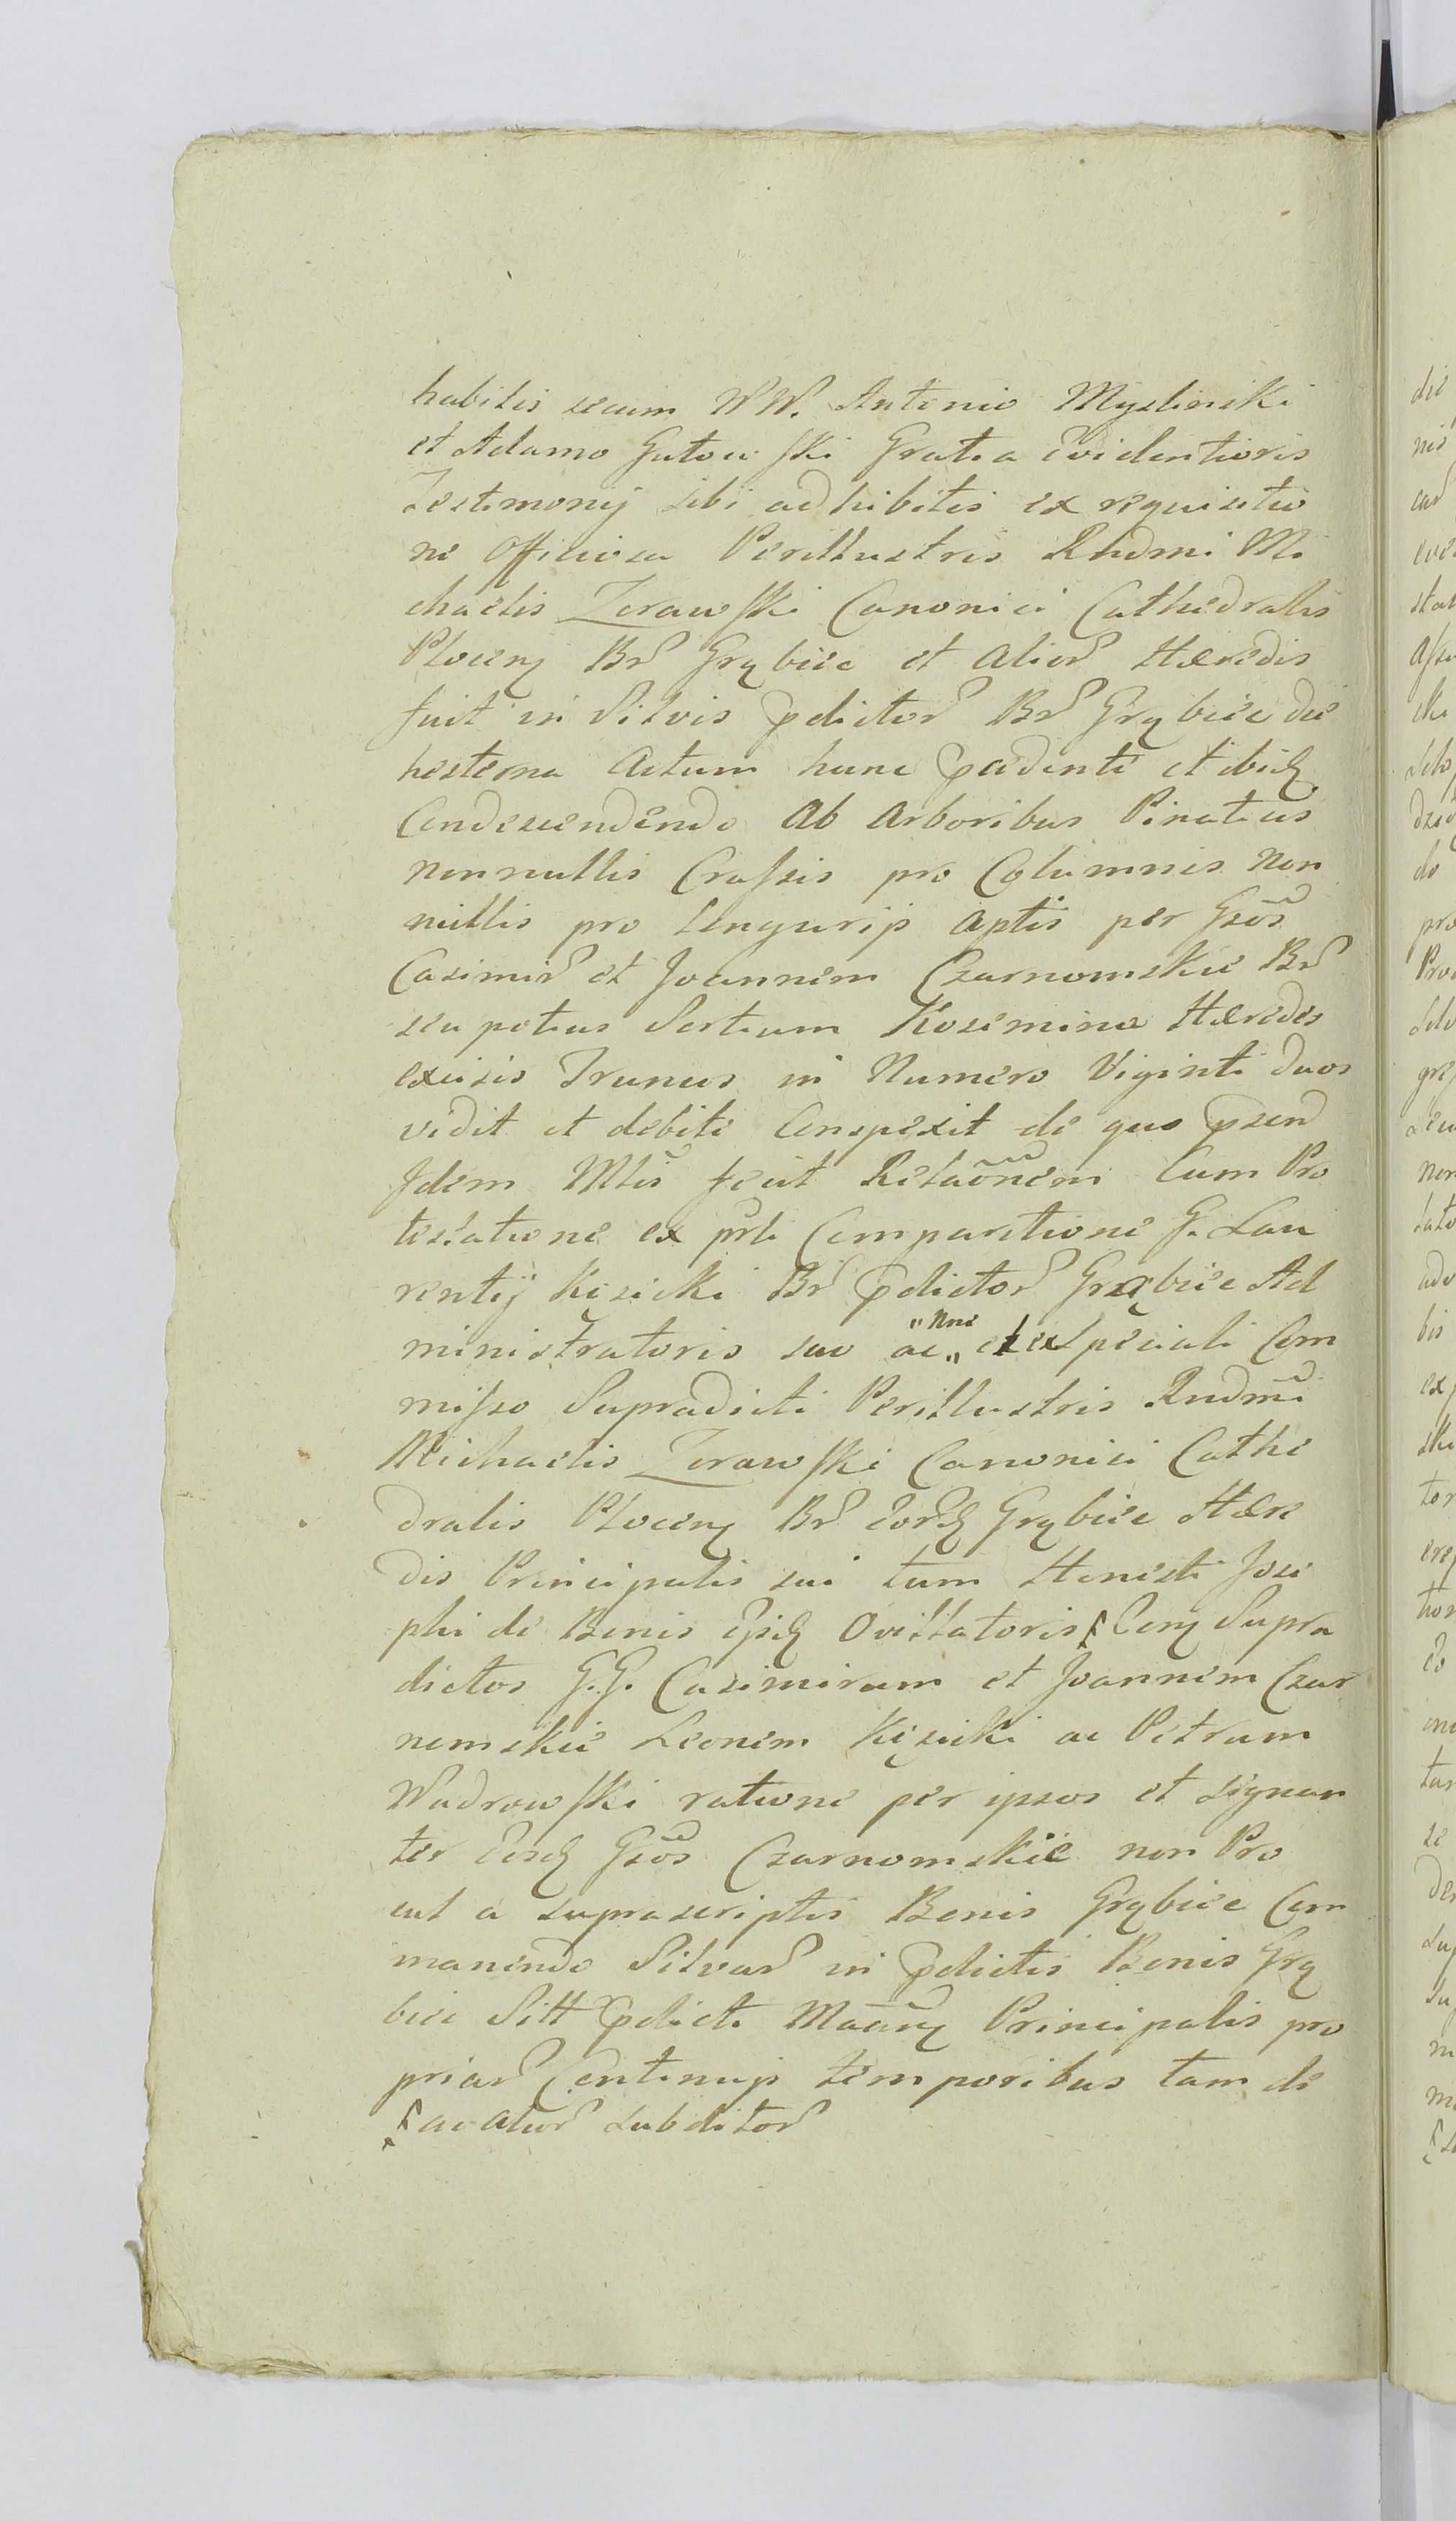 habitis secum WW. Antonio Myslinski
et Adamo Gutowski Gratia Evidentioris
Testimonij sibi adhibitis ex requisitio
ne Officiosa Perillustris Rndmi Mi
chaelis Zorawski Canonici Cathedralis
Plocen Br Grąbiec et alior Hæredis
fuit in Silvis pdictor Br Grąbiec die
hesterna Actum hunc pcedenti et ibid
Condescendendo Ab Arboribus Pinaticis
nonnullis Crassis pro Columnis non
nullis pro Tengurijs aptis per Gsos
Casimir et Joannem Czarnomskie Br
seu potius Sortium Kosemina Hæredes
excisis Truncos in Numero Viginti duos
vidit et debite Conspexit de quo psend
Idem Mtis fecit Relaõnem Cum Pro
testatione ex prli Comparitione G. Lau
rentij Kisicki Br pdictor Grąbiec Ad
ministratoris suo ac „Nne„ et ex Speciali Com
misso Supradicti Perillustris Rndmi
Michaelis Zorawski Canonici Cathe
dralis Plocen Br eord Grąbiec Hære
dis Principalis sui tum Honesti Jose
phi de Bonis ijsd Ovillatoris Con Supra
dictos G.G. Casimirum et Joannem Czar
nomskie Leonem Kisicki ac Petrum
Wadrowski ratione per ipsos et signan
ter eosd Gsos Czarnomskie non Pro
cul a suprascriptis Bonis Grąbiec Com
manendo Silvar in pdictis Bonis Grą
biec Sitt pdicti Principalis pro
priar Continuis temporibus tam de
ac alior subditor